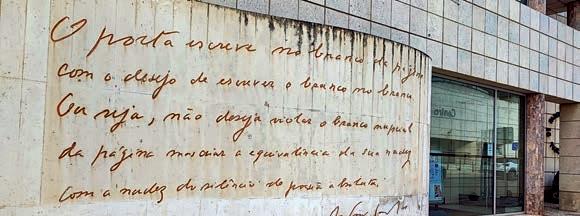 O poeta escreve no branco da página
com o desejo de escrever o branco no branco
Ou seja, não deseja violar o branco nupcial
da página mas aliar a equivalência da sua nudez
com a nudez do silêncio do poema absoluto.
Centro